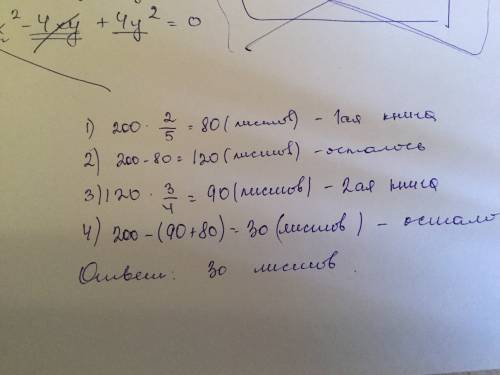 x² - 4xy + 4y² = 0
1) 200 · 2/5 = 80 (листов) - 1ая книга
2) 200 - 80 = 120 (листов) - осталось
3) 120 · 3/4 = 90 (листов) - 2ая книга
4) 200 - (90 + 80) = 30 (листов) - остало
Ответ: 30 листов.